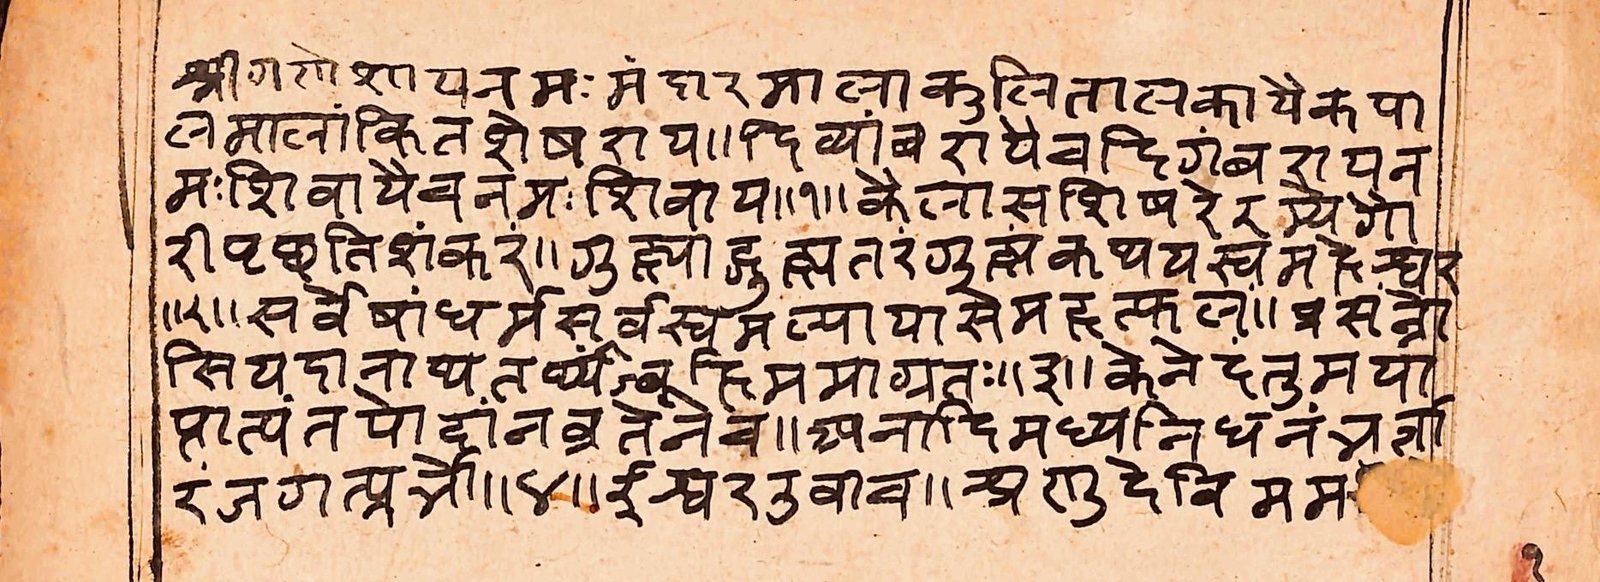 श्रीगणेशायनमः मंदारमालाकुलितालकायैकपा
लमालांकितशेषराय॥दिव्यांबरायैचदिगंबरायन
मःशिवायैचनमःशिवाय॥१॥कैलासशिषरेरम्यैगौ
रीपृछतिशंकरं॥गुह्याद्गुह्यतरंगुह्यंकथयस्वमहेश्वर
॥२॥सर्वेषांधर्मसर्वस्वमल्पायासैमहत्फलं॥प्रसंन्नो
सियदानाथतथ्यंब्रूहिममाग्रतः॥३॥केनेदंतुमया
प्राप्यंतपोदांनव्रतेनैव॥अनादिमध्यनिधनंभर्त्ता
रंजगत्प्रभौ॥४॥ईश्वरउवाच॥श्रणुदेविमम
१